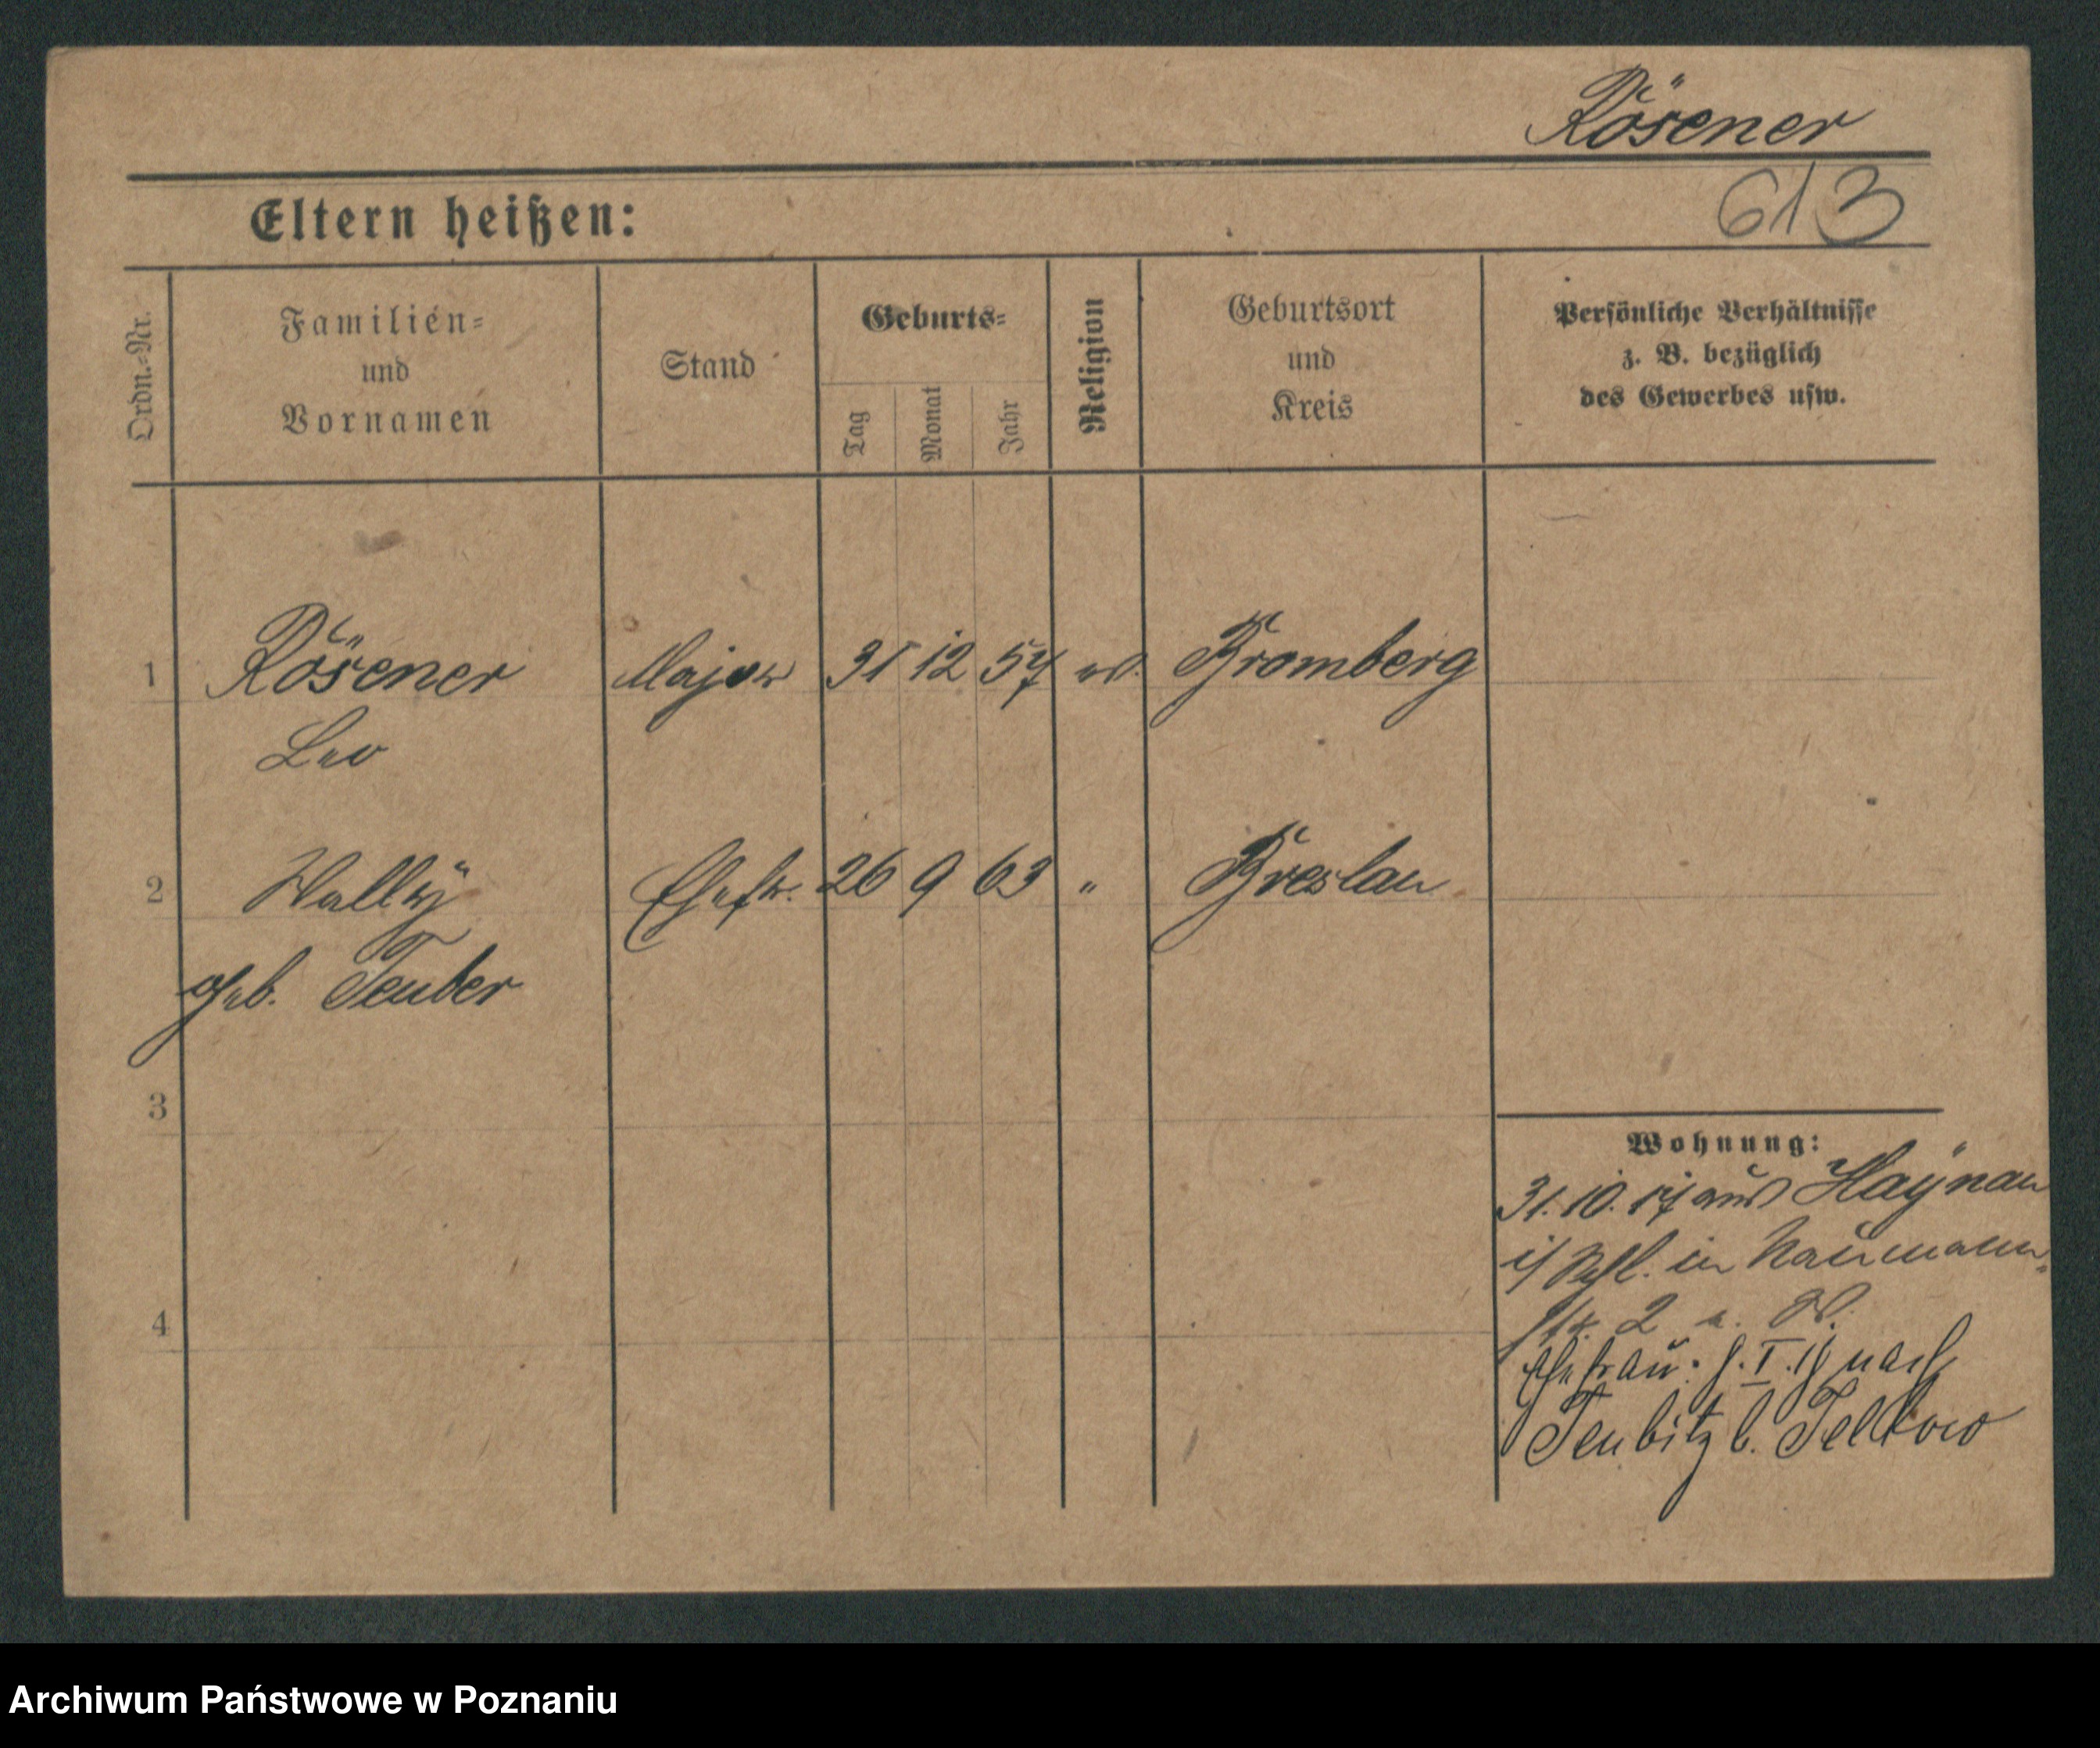 Rösener
613
Eltern heißen:
Ordn.-Nr.
Familien-
und
Vornamen
Stand
Geburts-
Tag
Monat
Jahr
Religion
Geburtsort
und
Kreis
Persönliche Verhältnisse
z. B. bezüglich
des Gewerbes usw.
1 Rösener Major 31 12 57 ev. Bromberg
Leo
2 Wally Ehefr. 26 9 63 " Breslau
geb. Teuber
3
4
Wohnung:
31.10.17 aus Haynau
i/ Schl. in Naumann-
str. 2
Ehefrau: I. 19 nach
Teubitz b. Teltow
Archiwum Państwowe w Poznaniu